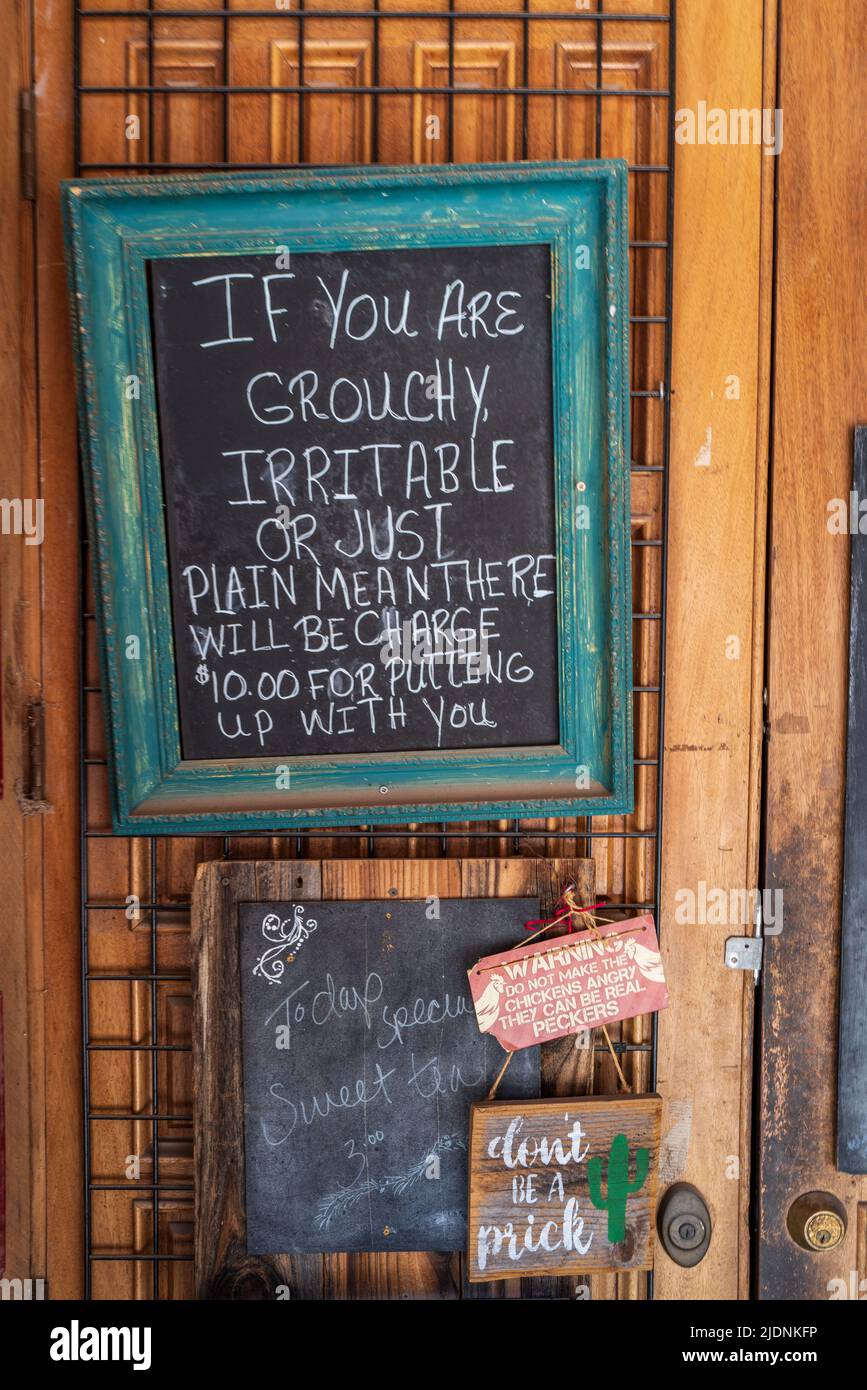 IF YOU ARE
GROUCHY,
IRRITABLE
OR JUST
PLAIN MEAN THERE
WILL BE CHARGE
$10.00 FOR PUTTING
UP WITH YOU
Todays special
Sweet tea
3.00
WARNING
DO NOT MAKE THE
CHICKENS ANGRY
THEY CAN BE REAL
PECKERS
don't
BE A
prick
alamy
Image ID: 2JDNKFP
www.alamy.com